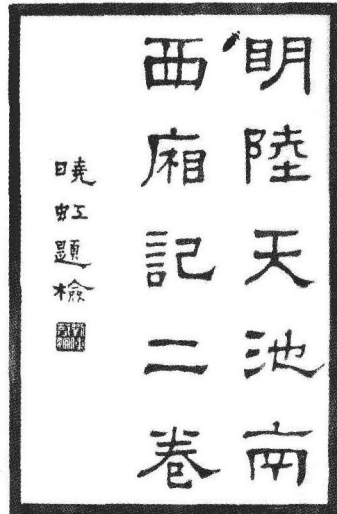 明陸天池南
西廂記二卷
曉虹題檢